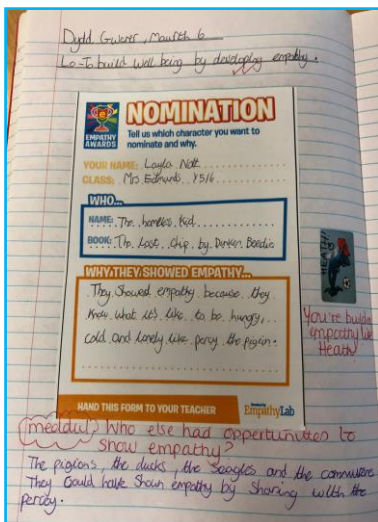 Dydd Gwener, Mawrth 6
LO-To build well being by developing empathy.
EMPATHY
AWARDS
NOMINATION
Tell us which character you want to
nominate and why.
YOUR NAME: Layla Nott
CLASS: Mrs Edmunds Y5/6
WHO...
NAME: The homeless Kid
BOOK: The Last Chip by Duncan Beedie
WHY THEY SHOWED EMPATHY...
They showed empathy because they
know what it's like to be hungry,
cold and lonely like percy the pigion.
HAND THIS FORM TO YOUR TEACHER
EmpathyLab
HEATH!
You're building
empathy like
Heath!
meddwl? Who else had oppertunities to
show empathy?
The pigions, the ducks, the Seagles and the commuters
They could have shown empathy by sharing with the
percy.